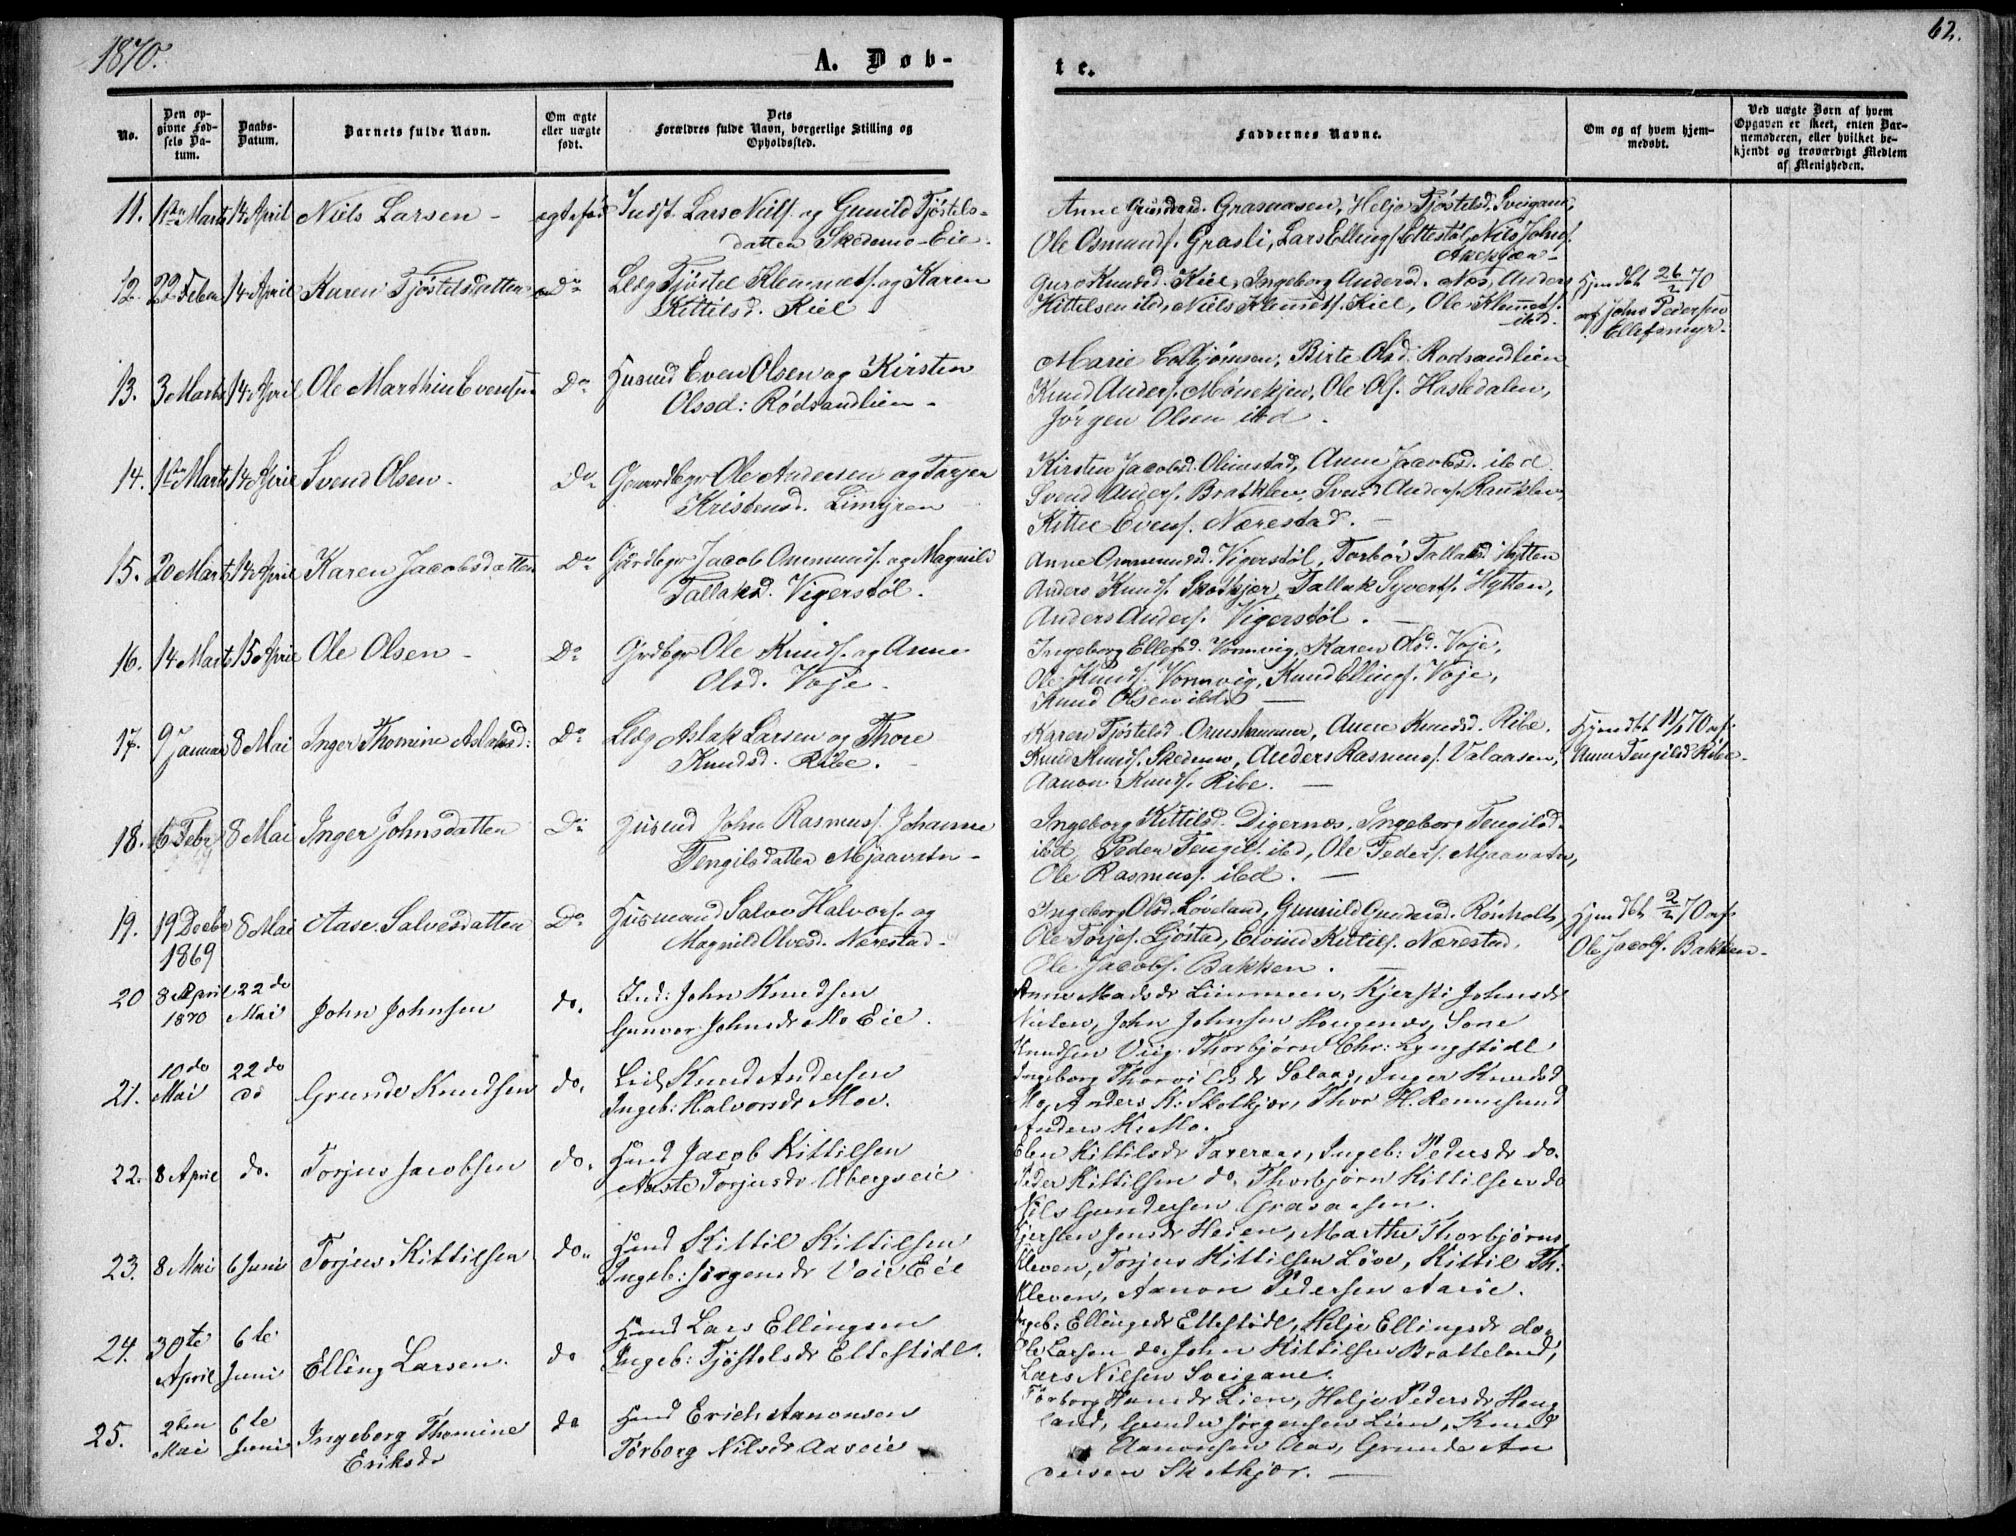 1870.
A. Døb-
te.
62.
No.
Den op-
givne Fød-
sels Da-
tum.
Daabs-
Datum.
Barnets fulde Navn.
Om ægte
eller uægte
født.
Dets
Forældres fulde Navn, borgerlige Stilling og
Opholdssted.
Faddernes Navne.
Om og af hvem hjem-
medøbt.
Ved uægte Børn af hvem
Opgaven er skeet, enten Bar-
nemoderen, eller hvilket be-
kjendt og troværdigt Medlem
af Menigheden.
11. 1ste Marts 14 April Niels Larsen - Indst. Lars Nielss. og Gunild Tjøstels-
datter Skedemo-Eie.
Ole Osmunds. Grasli, Lars Ellings. Ettestøl, Nils Johns.
12. 22 Febr 14 April Karen Tjøstelsdatter Do Tjøstel Klemmets. og Karen
Kittilsd. Kiel
Guro Knudsd. Kiel, Ingeborg Andersd. Næs, Anders
Kittelsen ibd, Niels Klemmets. Kiel, Ole Klemmets.
ibd.
Hjemdbt 26/2 70
af John Pedersen
Ellefsmyr.
13. 3 Marts 14 April Ole Marthin Evensen Do Husmd Even Olsen og Kirsten
Olsd: Rødsandlien -
Birte Olsd. Rodsandlien
Knud Anders. Ole Ols. Hasledalen,
Jørgen Olsen ibd.
14. 1ste Marts 14 April Svend Olsen - Do Gaardbgr Ole Andersen og Tarjer
Kristensd. Limyren
Kirsten Jacobsd. Olimstad, Anne Jacobsd. ibd.
Svend Anders. Bratklev, Svend Anders.
Kittel Evens. Nærestad. -
15. 20 Marts 14 April Karen Jacobsdatter Do Grdbgr Jacob Ommunds. og Magnild
Tallaksd. Vigerstøl.
Anne Ommundsd. Vigerstøl, Torbør Tallaksd. Hytten
Anders Knuds. Skotkjær, Tallak Syverts. Hytten,
Anders Anders. Vigerstøl. -
16. 14 Marts 15 April Ole Olsen - Do Grdbgr Ole Knuds. og Anne
Olsd. Voje.
Ingeborg Ellefsd. Vormvig, Karen Olsd. Voje,
Ole Knuds. Vormvig, Knud Ellings. Voje,
Knud Olsen ibd. -
17. 9 Januar 8 Mai Inger Thomine Aslaksd: Do Aslak Larsen og Thore
Knudsd. Ribe.
Karen Tjøstelsd. Ormshammer, Anne Knudsd. Ribe.
Knud Knuds. Skedemo, Anders Rasmus. Valaasen,
Aanon Knuds. Ribe. -
Hjemdbt 11/1 70 af
Anne Tengilsd Ribe.
18. 6 Febr 8 Mai Inger Johnsdatter Do Husmd John Rasmuss. Johanne
Tengilsdatter Mjaavatn -
Ingeborg Kittilsd. Digernæs, Ingeborg Tengilsd.
ibd. Peder Tengils. ibd, Ole Peders. Mjaavatn,
Ole Rasmuss. ibd. -
19. 19 Decbr
1869 8 Mai Aase Salvesdatter Do Husmand Salve Halvors. og
Magnild Olvesd. Nærestad -
Ingeborg Olsd. Løveland, Gunnild Gundersd. Rønholt,
Ole Torjes. Ljøstad, Eivind Kittils. Nærestad,
Ole Jacobs. Bakken. -
Hjemdbt 2/2 70 af
Ole Jacobs. Bakken -
20 8 April
1870 22 do
Mai John Johnsen do. Ind: John Knudsen
Gunvor Johnsdr Mo Eie.
Anne Madsdr Limmeen, Kjersti Johnsdr
John Johnsen Hougenæs, Sone
Knudsen Viig. Thorbjørn Chr: Lyngstødl
21. 10 do
Mai 22 do
do Grunde Knudsen do. Knud Andersen
Ingeb: Halvorsdr Moe.
Ingeborg Solaas, Inger Knudsd
Mo, Anders K: Skotkjær, Thor H. Remmesund
Anders K: Mo.
22. 8 April do. Torjus Jacobsen do. Husmd Jacob Kittilsen
Aaste Torjusdr Ubergseie
Elen Kittilsdr Taxeraas, Ingeb: Pedersdr do.
Peder Kittilsen do. Thorbjørn Kittilsen do
Nils Gundersen Grasaasen.
23. 8 Mai 6 Juni Torjus Kittilsen do. Husmd Kittil Kittilsen
Ingeb: Jørgensdr Voie Eie
Kjersten Jensdr Heien, Marthe Thorbjørns
Kleven, Torjus Kittilsen Løve, Kittil Th:
Kleven, Aanon Pedersen Aasie.
24. 30te
April 6te
Juni Elling Larsen. do Husmd Lars Ellingsen
Ingeb: Tjøstelsdr Ettestødl.
Ingeb: Ellingsdr Ettestødl, Helje Ellingsdr do.
Ole Larsen do. John Kittilsen Bratteland,
Lars Nilsen Sveigane.
25. 2den
Mai 6te
Juni Ingeborg Thomine
Eriksdr do Husmd Erich Aanonsen
Torborg Nilsdr Aaseie
Torborg Lien, Helje Pedersdr Houg
land, Gunder Jørgensen Lien, Knud
Aanonsen Aas, Grunde An
dersen Skotkjær. -